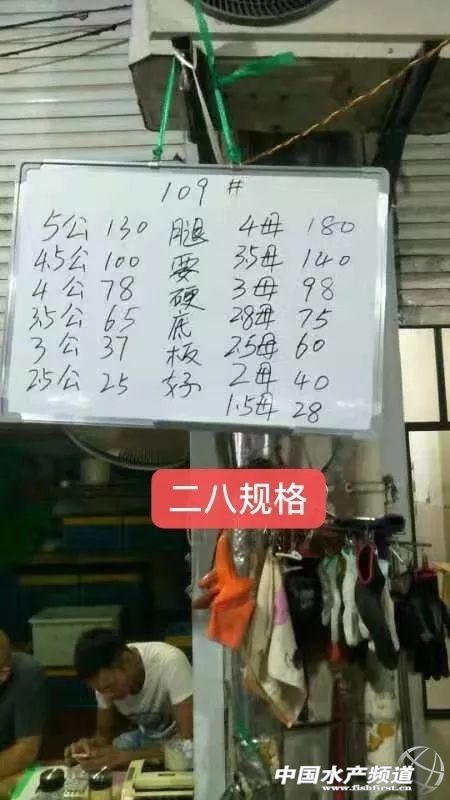 109#
5公 130 腿 4母 180
4.5公 100 要 3.5母 140
4公 78 硬 3母 98
3.5公 65 底 2.8母 75
3公 37 板 2.5母 60
2.5公 25 好 2母 40
1.5母 28
二八规格
中国水产频道
www.fishfirst.cn